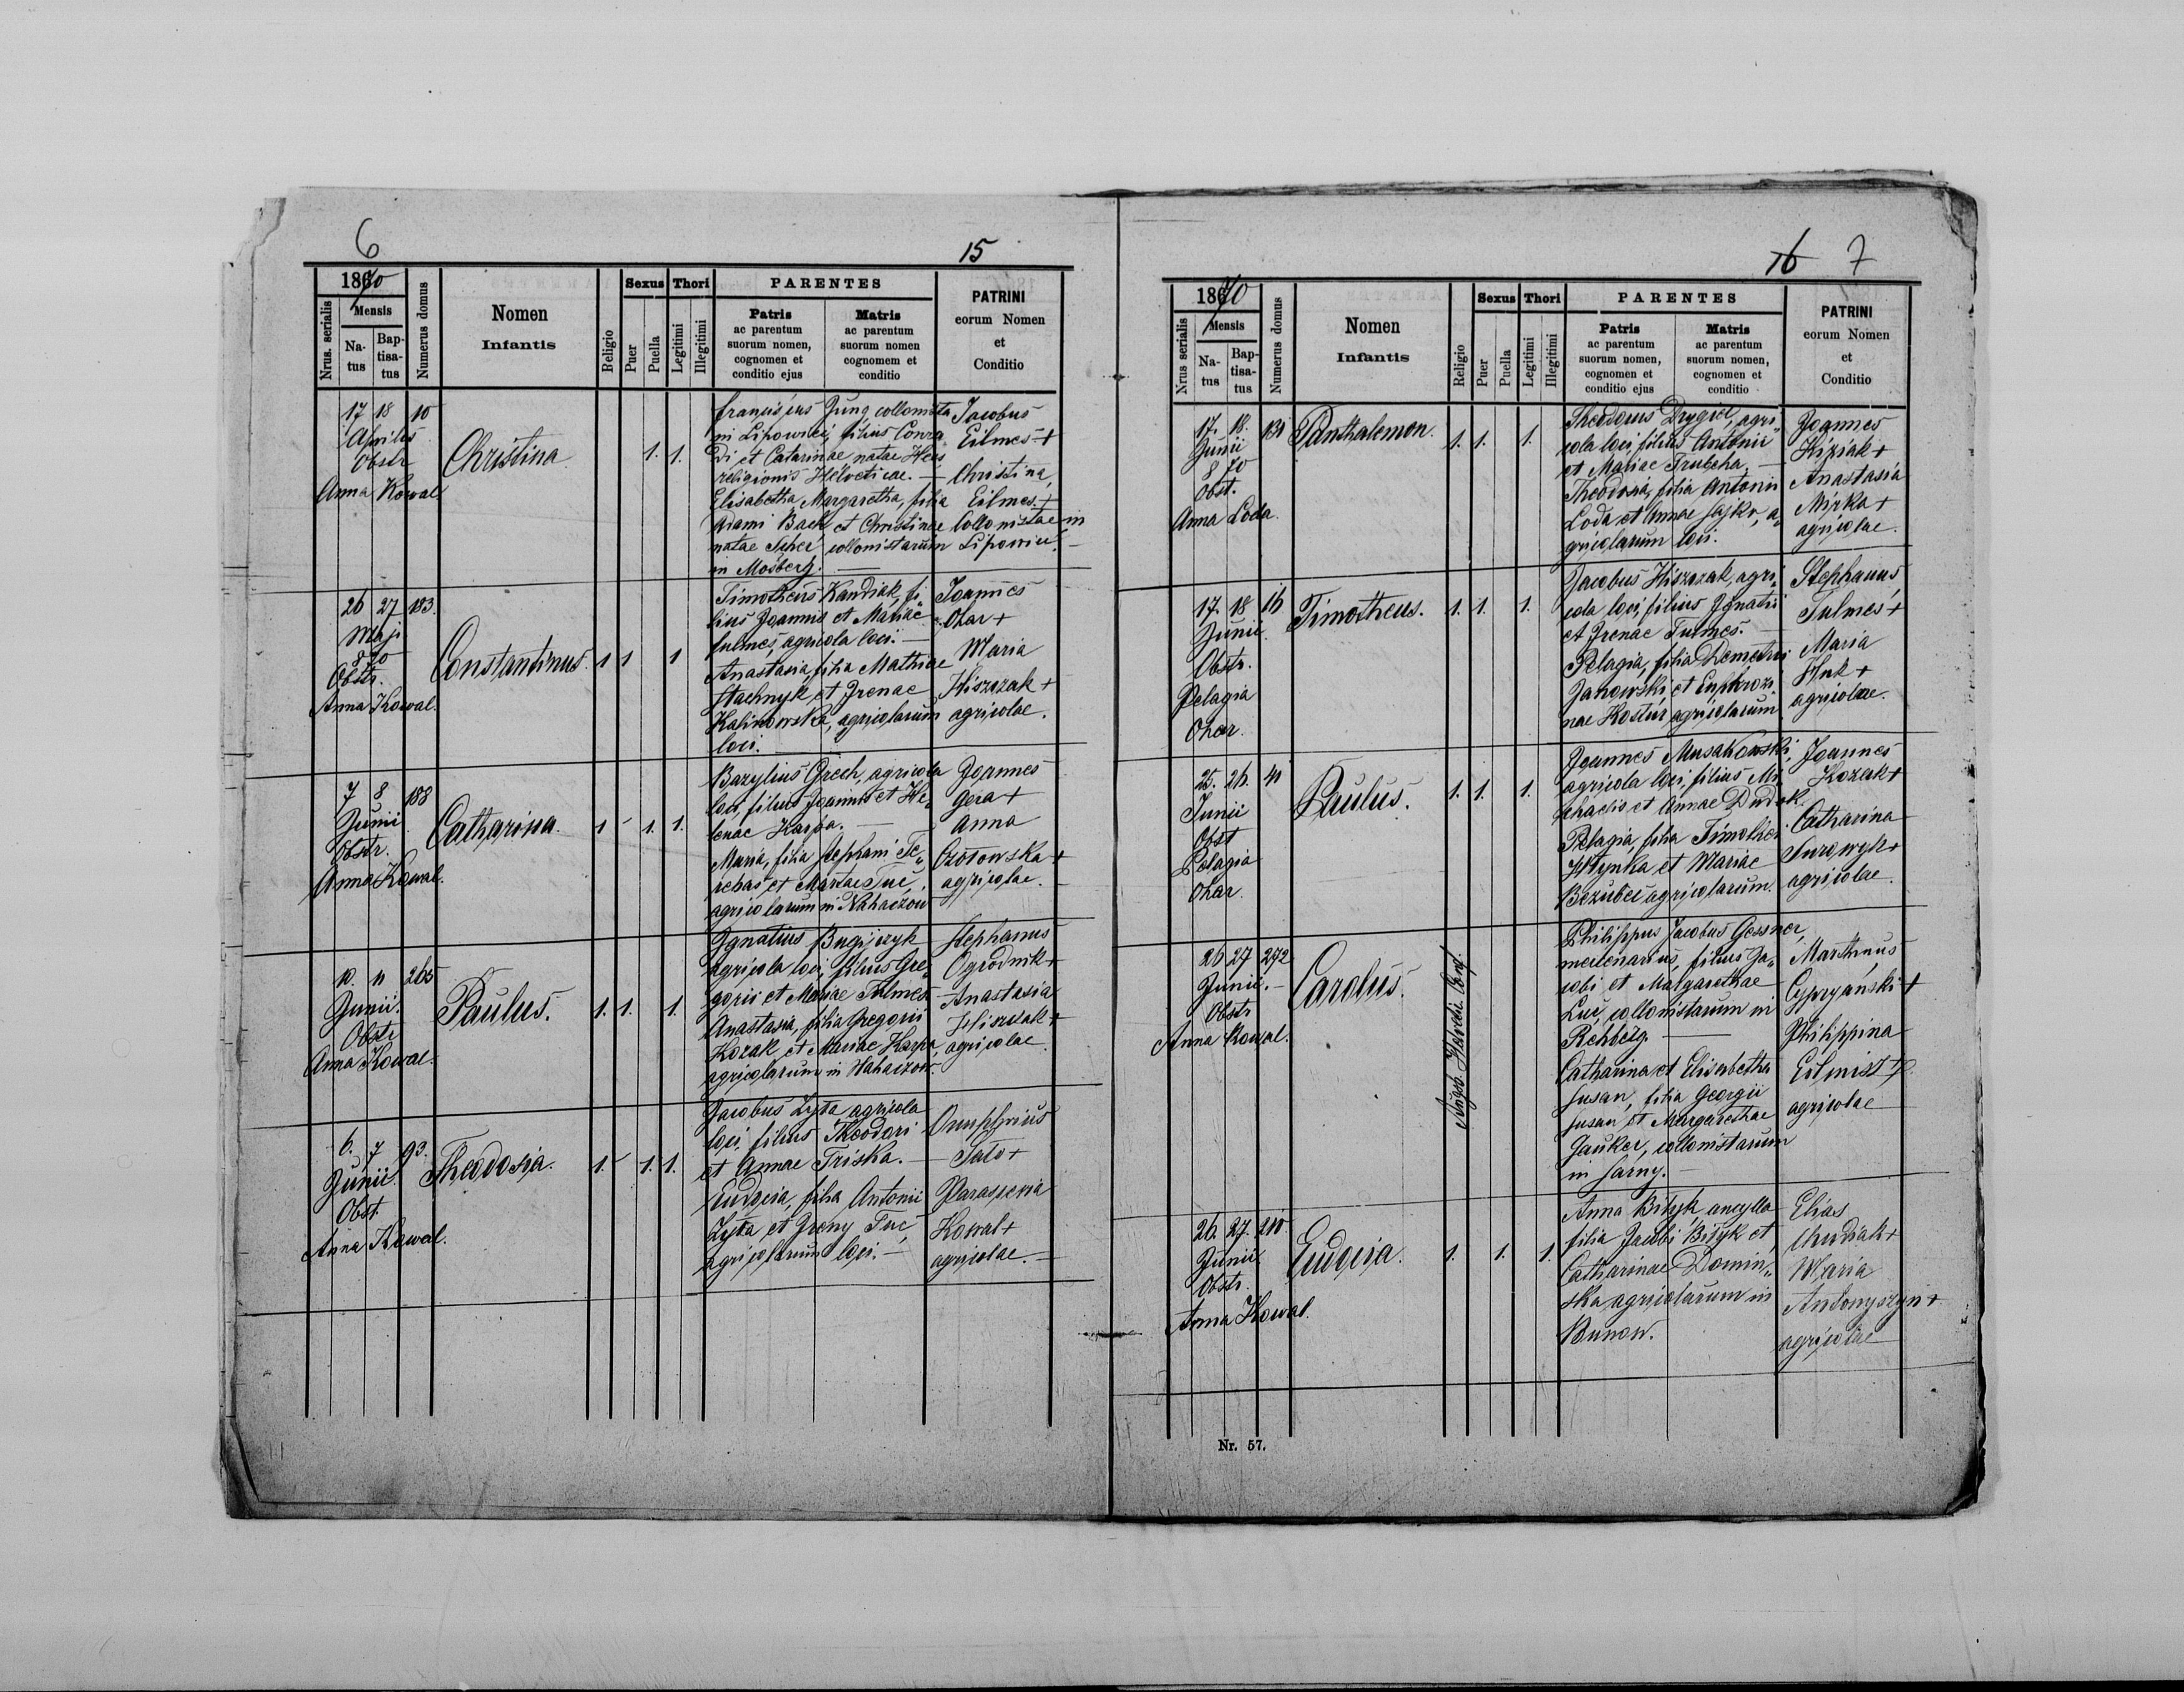 6
15
1860
Nrus. serialis
Mensis
Na-
tus
Bap-
tisa-
tus
Numerus domus
Nomen
Infantis
Religio
Sexus
Puer
Puella
Thori
Legitimi
Illegitimi
PARENTES
Patris
ac parentum
suorum nomen,
cognomen et
conditio ejus
Matris
ac parentum
suorum nomen
cognomem et
conditio
PATRINI
eorum Nomen
et
Conditio
17 18 10
Aprilis
Obstr
Anna Kowal
Christina
1. 1.
Franciscus Jung collonista
in Lipowiec, filius Conra
di et Catarinae natae Hers
religionis Helveticae. —
Elisabetha Margaretha, filia
Adami Bach et Christinae
natae Scher, collonistarum
in Mosberg. —
Jacobus
Eilmes +
Christina
Eilmes +
Collonistae in
Lipowiec. —
26 27 183.
Maji
870
Obstr.
Anna Kowal.
Constantinus.
1 1 1
Timotheus Kandiak, fi„
lius Joannis et Mariae
Tulmes, agricola loci. —
Anastasia, filia Mathiae
Stachnyk, et Irenae
Kalinowska, agricolarum
loci.
Joannes
Ohar +
Maria
Hiszczak +
agricolae.
7 8 188
Junii
Obstr.
Anna Kowal.
Catharina.
1 - 1. 1.
Bazylius Grech, agricola
loci, filius Joannis et He„
lenae Karpa. —
Maria, filia Stephani Te„
rebas et Martae Tuć,
agricolarum in Nahaczow
Joannes
Gera +
Anna
Czotowska +
agricolae. —
10. 11 265
Junii.
Obstr
Anna Kowal.
Paulus.
1. 1. 1.
Ignatius Bugijczyk
agricola loci, filius Gre„
gorii et Mariae Tulmes
Anastasia, filia Gregorii
Kozak, et Mariae Karpa,
agricolarum in Nahaczow.
Stephanus
Ogrodnik +
Anastasia
Hiszczak +
agricolae.
6. 7 93.
Junii.
Obst.
Anna Kowal.
Theodosia.
1. - 1. 1.
Jacobus Zyta agricola
loci, filius Theodori
et Annae Triska. —
Eudocia, filia Antonii
Zyta et Ireny Tuć,
agricolarum loci. —
Onuphrius
Sato +
Parascevia
Kowal +
agricolae. —
16 7
1860
Nrus serialis
Mensis
Na-
tus
Bap-
tisa-
tus
Numerus domus
Nomen
Infantis
Religio
Sexus
Puer
Puella
Thori
Legitimi
Illegitimi
PARENTES
Patris
ac parentum
suorum nomen,
cognomen et
conditio ejus
Matris
ac parentum
suorum nomen,
cognomen et
conditio
PATRINI
eorum Nomen
et
Conditio
17. 18. 131
Junii
870
Obst.
Anna Loda.
Panthalemon.
1. 1. 1.
Theodorus Drygiel, agri„
cola loci, filius Antonii
et Mariae Trubcha. —
Theodosia, filia Antonii
Loda et Annae Sajko, a„
gricolarum loci.
Joannes
Kipiak +
Anastasia
Mipka +
agricolae.
17. 18 16
Junii.
Obstr.
Pelagia
Ohar
Timotheus.
1. 1. 1.
Jacobus Hiszczak, agri„
cola loci, filius Ignatii
et Irenae Tulmes. —
Pelagia, filia Demetrii
Janowski et Euphrozi„
nae Kostur agricolarum
Stephanus
Tulmes +
Maria
Huk +
agricolae.
25. 26. 41
Junii
Obst
Pelagia
Ohar.
Paulus.
1. 1. 1.
Joannes Musakowski,
agricola loci, filius Mi„
chaelis et Annae Dudok.
Pelagia, filia Timothei
Hlynka et Mariae
Bezubec agricolarum.
Joannes
Kozak +
Catharina
Surowyk +
agricolae.
26 27 272
Junii. —
Obstr
Anna Kowal.
Carolus.
Augsb. Helveti. Conf.
Philippus Jacobus Gessner,
mercenarius, filius Ja„
cobi et Margarethae
Luc, collonistarum in
Rehberg. —
Catharina et Elisabetha
Susan, filia Georgii
Susan et Margarethae
Jauker, collonistarum
in Sarny. —
Marthinus
Cypryański +
Philippina
Eilmist +
agricolae
26. 27. 210
Junii.
Obstr.
Anna Kowal.
Eudocia.
1. 1. 1.
Anna Bityk ancylla
filia Jacobi Bityk et
Catharinae Domin„
ska agricolarum in
Bunow.
Elias
Chudiak +
Maria
Antonyszyn +
agricolae
Nr. 57.